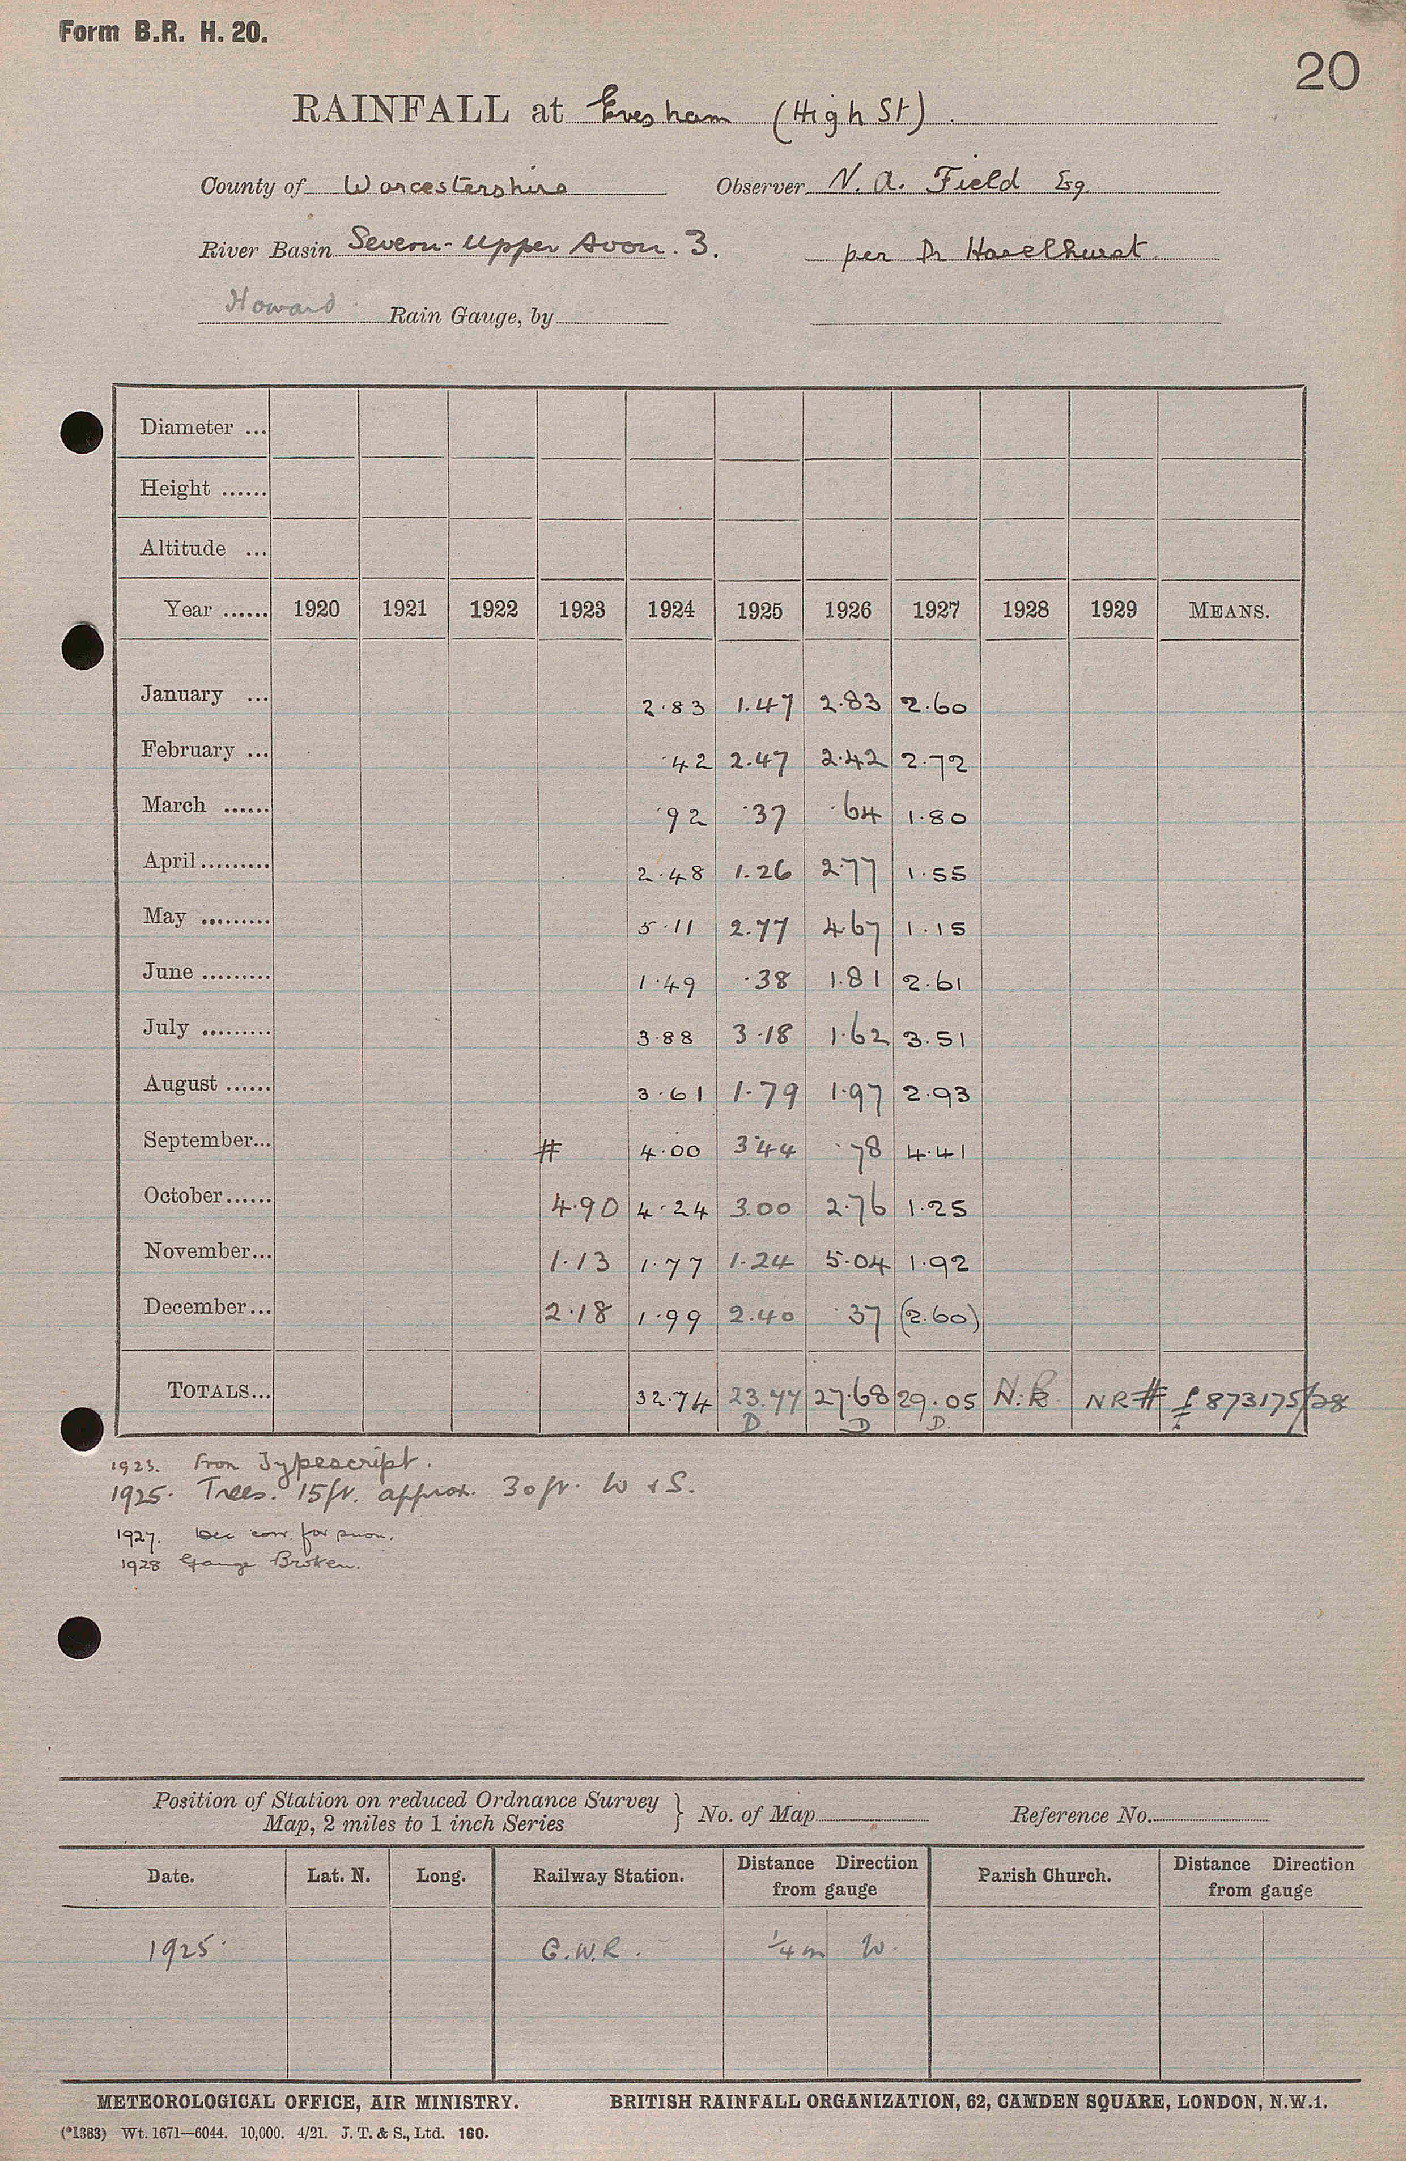 Form B.R. H. 20.
20
RAINFALL at Evesham (High St)
County of Worcestershire Observer N. A. Field Esq
River Basin Severn - Upper Avon. 3. per Dr Haselhurst
Howard Rain Gauge, by
Diameter ...
Height ......
Altitude ...
Year ...... 1920 1921 1922 1923 1924 1925 1926 1927 1928 1929 MEANS.
January ... 2.83 1.47 2.83 2.60
February ... .42 2.47 2.42 2.72
March ...... .92 .37 .64 1.80
April ......... 2.48 1.26 2.77 1.55
May ......... 5.11 2.77 4.67 1.15
June ......... 1.49 .38 1.81 2.61
July ......... 3.88 3.18 1.62 3.51
August ...... 3.61 1.79 1.97 2.93
September... # 4.00 3.44 .78 4.41
October...... 4.90 4.24 3.00 2.76 1.25
November... 1.13 1.77 1.24 5.04 1.92
December... 2.18 1.99 2.40 .37 (2.60)
TOTALS... 32.74 23.77 27.68 29.05 N.R. NR # £ 873175/28
D. D D.
1923. From Typescript.
1925. Trees. 15ft. approx. 30 ft. W & S.
1927. Dec corr. for snow.
1928 Gauge Broken.
Position of Station on reduced Ordnance Survey
Map, 2 miles to 1 inch Series } No. of Map Reference No.
Date. Lat. N. Long. Railway Station. Distance Direction from gauge Parish Church. Distance Direction from gauge
1925. G.W.R. 1/4 m W.
METEOROLOGICAL OFFICE, AIR MINISTRY. BRITISH RAINFALL ORGANIZATION, 62, CAMDEN SQUARE, LONDON, N.W.1.
(*1383) Wt. 1671—6044. 10,000. 4/21. J. T. & S., Ltd. 160.